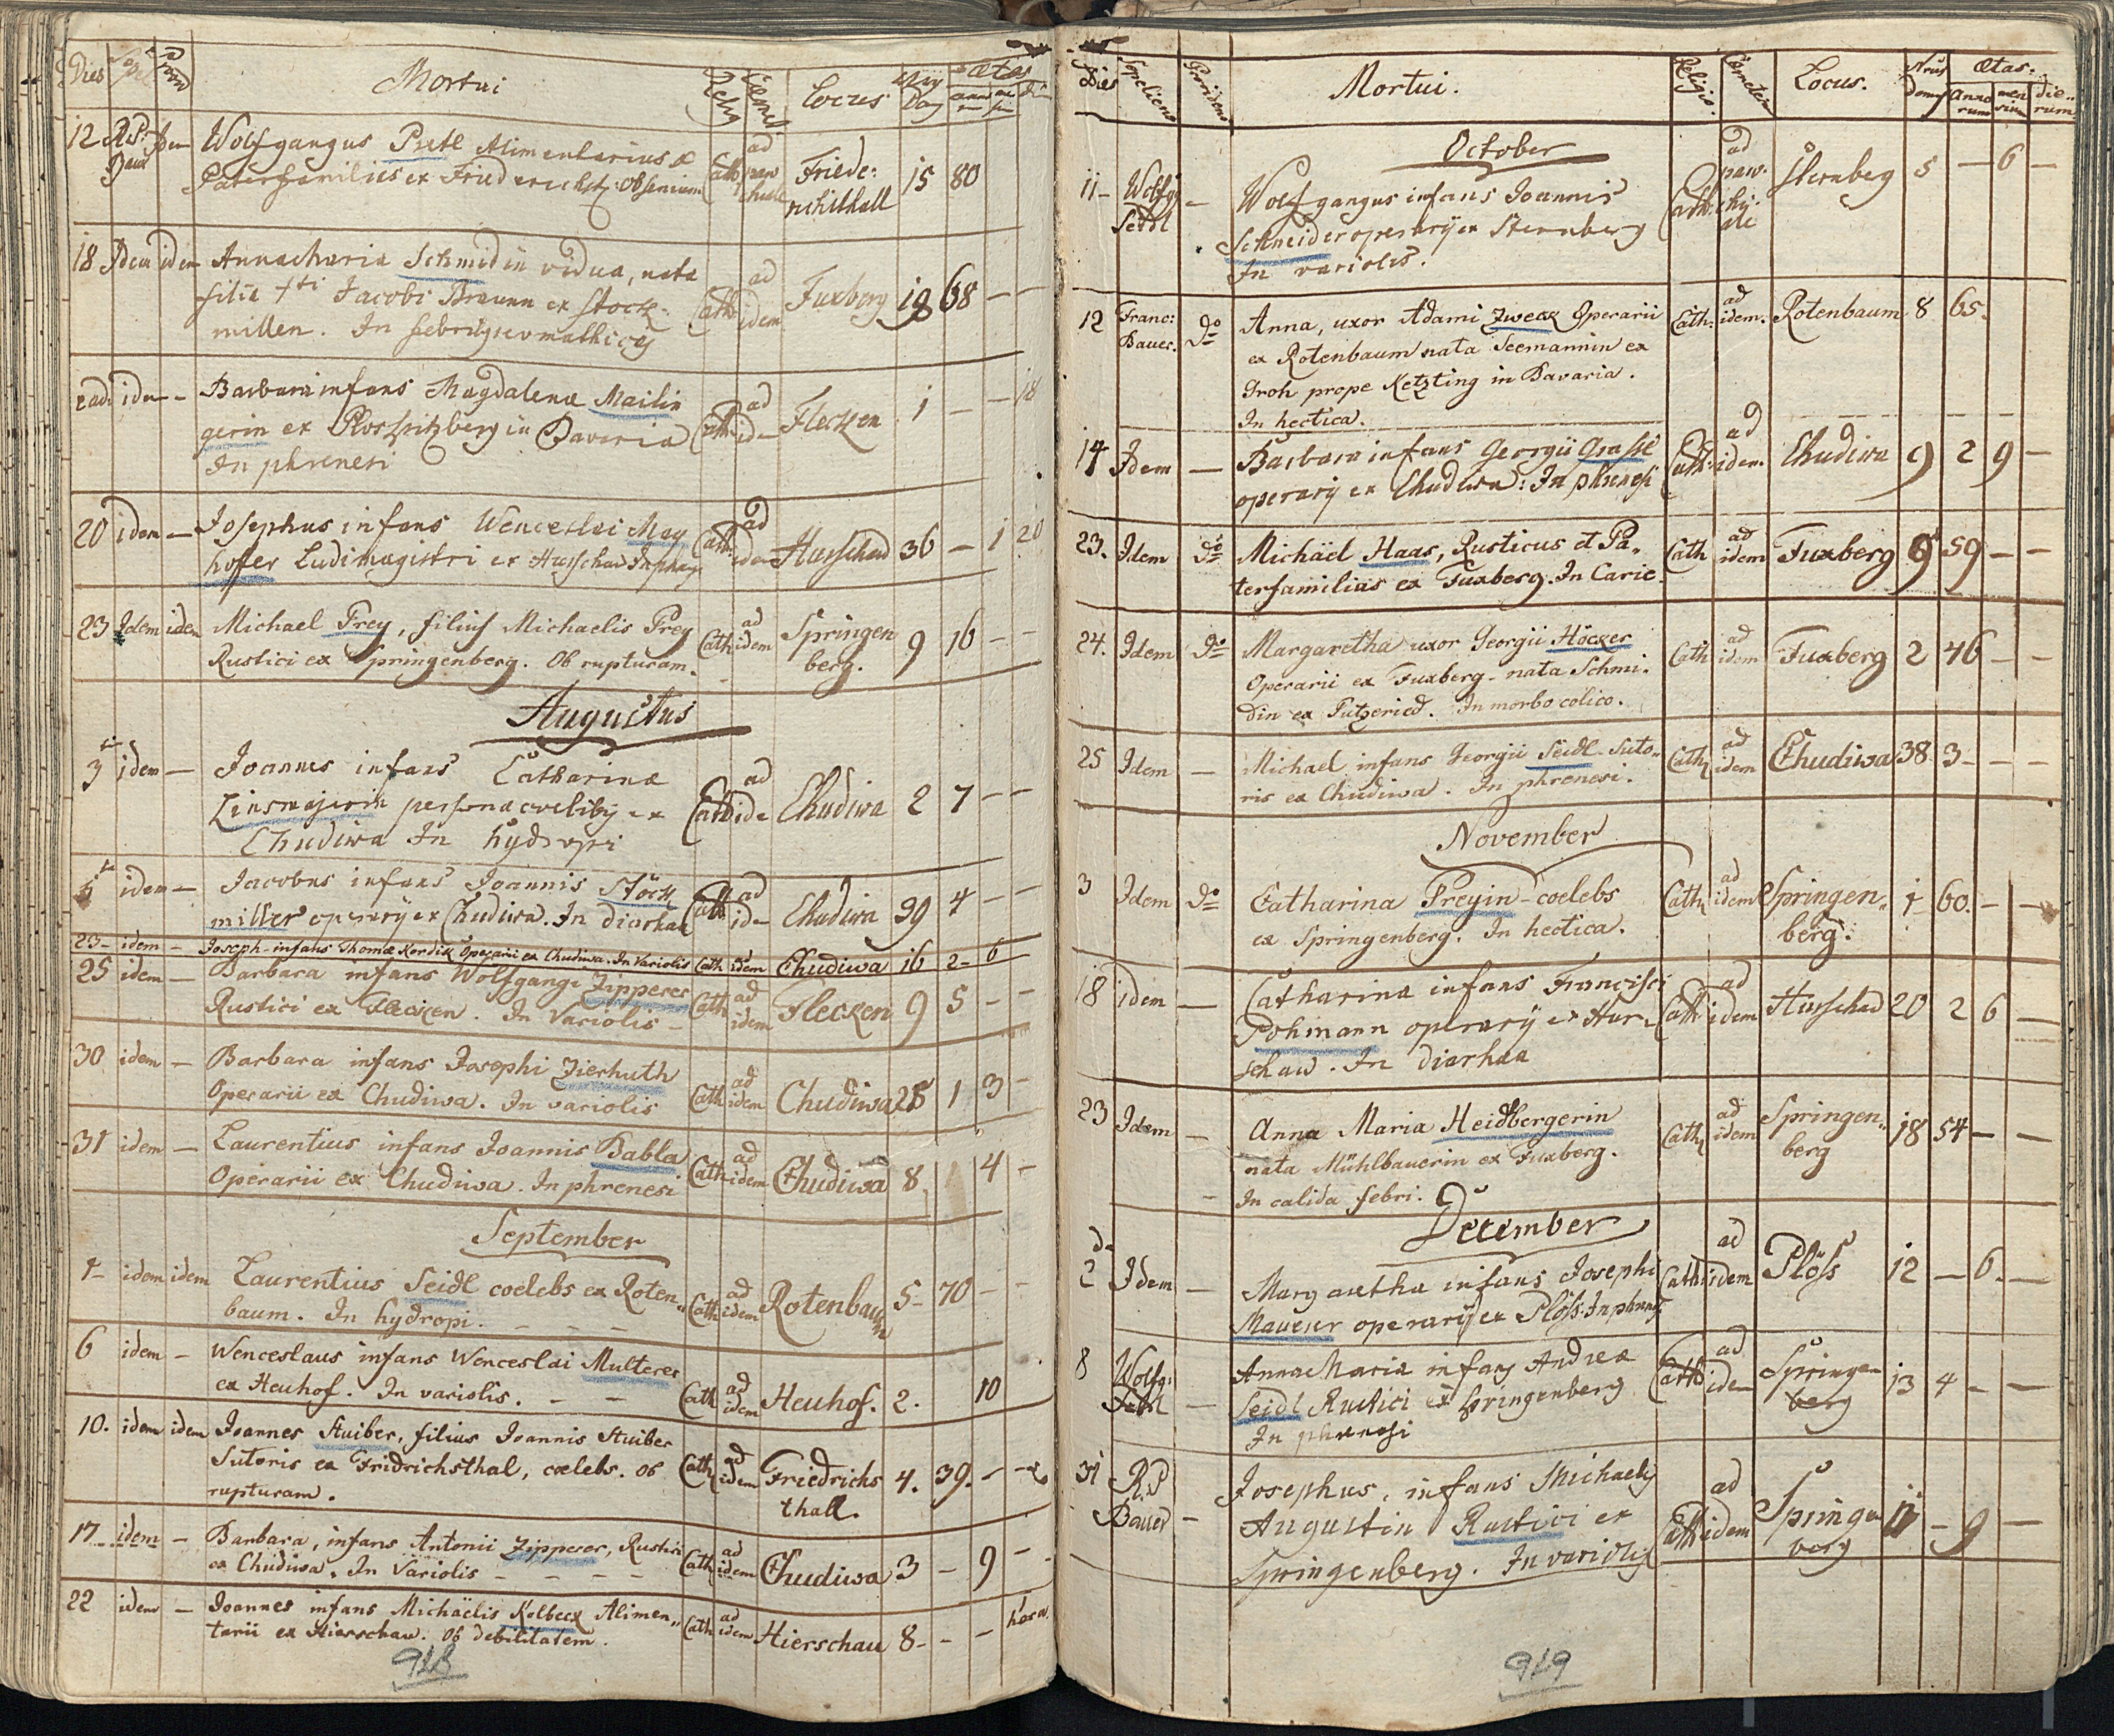 Dies
Mortui
Locus
Ætas
12 Idem Wolfgangus Pretl Alimentarius &
Paterfamilias ex Friderichsth: Ob senium Cath ad paro chiale Friede: richsthall 15 80
18 Idem idem Anna Maria Schmidin vidua, nata
filia Jacobi Braunn ex Stock-
millen. In febri Cath ad idem Fuxberg 19 68 — —
idem — Barbara infans Magdalenæ Mailin
gerin ex in Bavaria Cath ad idem Flecken 1 — — 18
In phrenesi
20 idem — Josephus infans Wenceslai May
hofer Ludimagistri ex Hurschau Cath ad idem Hurschau 36 — 1 20
23 Idem idem Michael Frey, filius Michaelis Frey
Rustici ex Springenberg. Ob rupturam. Cath ad idem Springen berg. 9 16 — —
Augustus
3 idem — Joannes infans Catharinæ
Zinsmajerin personæ coelibis ex Cath ad ide Chudiwa 2 7 — —
Chudiwa In hydropi
4 idem — Jacobus infans Joannis Stöck
miller operarij ex Chudiwa. In diarhæa Cath ad ide Chudiwa 39 4 — —
23 — idem — Joseph infans Thomæ Kordik Operarii ex Chudiwa. In Variolis Cath idem Chudiwa 16 2 — 6
25 idem — Barbara infans Wolfgangi Zipperer
Rustici ex Flecken. In Variolis — Cath ad idem Flecken 9 5 — —
30 idem — Barbara infans Josephi Zierhuth
Operarii ex Chudiwa. In variolis Cath ad idem Chudiwa 25 1 3 —
31 idem — Laurentius infans Joannis Babla
Operarii ex Chudiwa. In phrenesi Cath ad idem Chudiwa 8 4 —
September
1 — idem idem Laurentius Seidl coelebs ex Roten„
baum. In hydropi. Cath ad idem Rotenbaum 5 — 70 — —
6 idem — Wenceslaus infans Wenceslai Multerer
ex Heuhof. In variolis. — — Cath ad idem Heuhof. 2. 10
10. idem idem Joannes Stuiber, filius Joannis Stuiber
Sutoris ex Fridrichsthal, coelebs. Ob Cath ad idem Friedrichs thall. 4. 39. —
rupturam.
17 idem — Barbara, infans Antonii Zipperer, Rustici
ex Chudiwa. In Variolis — — — — Cath ad idem Chudiwa 3 — 9 —
22 idem — Joannes infans Michäelis Kolbeck Alimen„
tarii ex Hierschau. Ob debilitatem. Cath ad idem Hierschau 8 — — — 1 hora
918
Dies Sepeliens Providens Mortui. Religio. Cæmeter. Locus. Nrus Domus Ætas.
Anno rum men sium die rum
October
11 — Wolfg: Seidl — Wolfgangus infans Joannis
Schneider operarij ex Sternberg Cath: ad paro- chia- le Sternberg 5 — 6 —
In variolis.
12 Franc: Bauer. do Anna, uxor Adami Zweck Operarii
ex Rotenbaum nata Seemannin ex Cath: ad idem. Rotenbaum 8 65.
Groh prope Ketzting in Bavaria.
In hectica.
14 Idem — Barbara infans Georgii Grassl
operarij ex Chudiwa: In phrenesi Cath: ad idem. Chudiwa 9 2 9 —
23. Idem do Michäel Haas, Rusticus et Pa„
terfamilias ex Fuxberg. In Carie. Cath ad idem Fuxberg 9 59 — —
24. Idem do Margaretha uxor Georgii Höcker
Operarii ex Fuxberg — nata Schmi„ Cath ad idem Fuxberg 2 46 — —
din ex Putzeried. In morbo colico.
25 Idem — Michael infans Georgii Seidl Suto„
ris ex Chudiwa. In phrenesi. Cath ad idem Chudiwa 38. 3 — — —
November
3 Idem do Catharina Preyin — coelebs
ex Springenberg. In hectica. Cath ad idem Springen„ berg. 1 60. — —
18 idem — Catharina infans Francisci
Pohmann operarij ex Hur- Cath ad idem Hurschau 20 2 6 —
schau. In diarhæa
23 Idem — Anna Maria Heidbergerin
nata Mühlbauerin ex Fuxberg. Cath ad idem Springen„ berg 18 54 — —
— In calida febri.
December
2 Idem — Margaretha infans Josephi
Maurer operarij ex Plöss. In phrenesi Cath ad idem Plöss 12 — 6. —
8 Wolfg: Seidl — Anna Maria infans Andreæ
Seidl Rustici ex Springenberg Cath ad idem Springen berg 13 4 — —
In phrenesi
31 R.P Bauer — Josephus, infans Michaelis
Augustin Rustici ex Cath ad idem Springen berg 11 — 9 —
Springenberg. In variolis
919